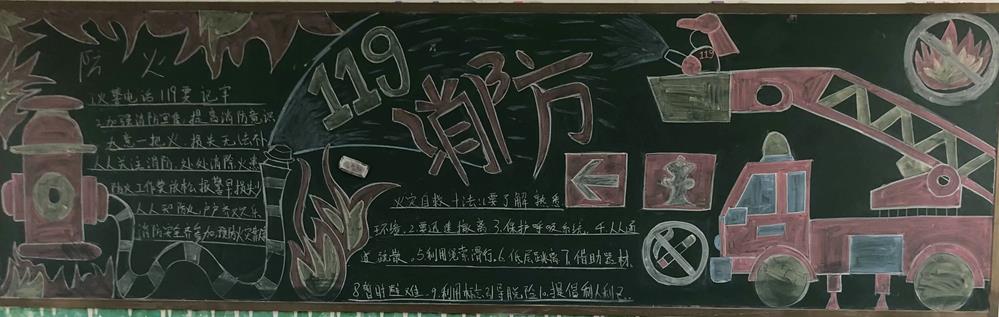 防火
火警电话119要记牢
2.加强消防宣传,提高消防意识
大意一把火,损失无法补
人人关注消防,处处消除火患
防火工作莫放松,报警早损失少
人人防火,户户齐欢乐
消防安全齐参加,预防火灾
119
消防
119
火灾自救十法:1.要了解熟悉
环境.2.要迅速撤离3.保护呼吸系统.4.从通
道疏散.5.利用绳索滑行.6.低层跳离7.借助器材.
8暂时避难.9.利用标志引导脱险10.提倡利人利己